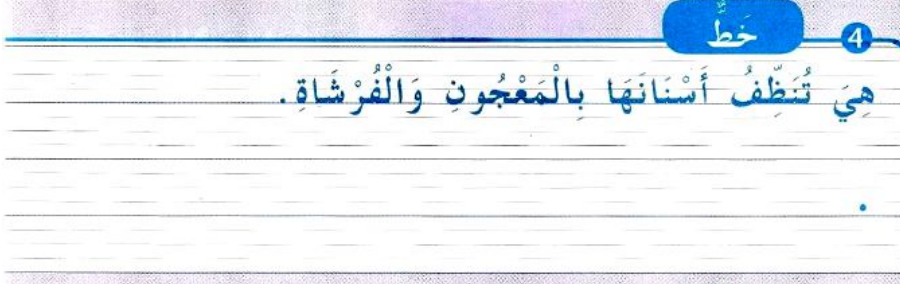 4 خَطٌّ
هِيَ تُنَظِّفُ أَسْنَانَهَا بِالْمَعْجُونِ وَالْفُرْشَاةِ.